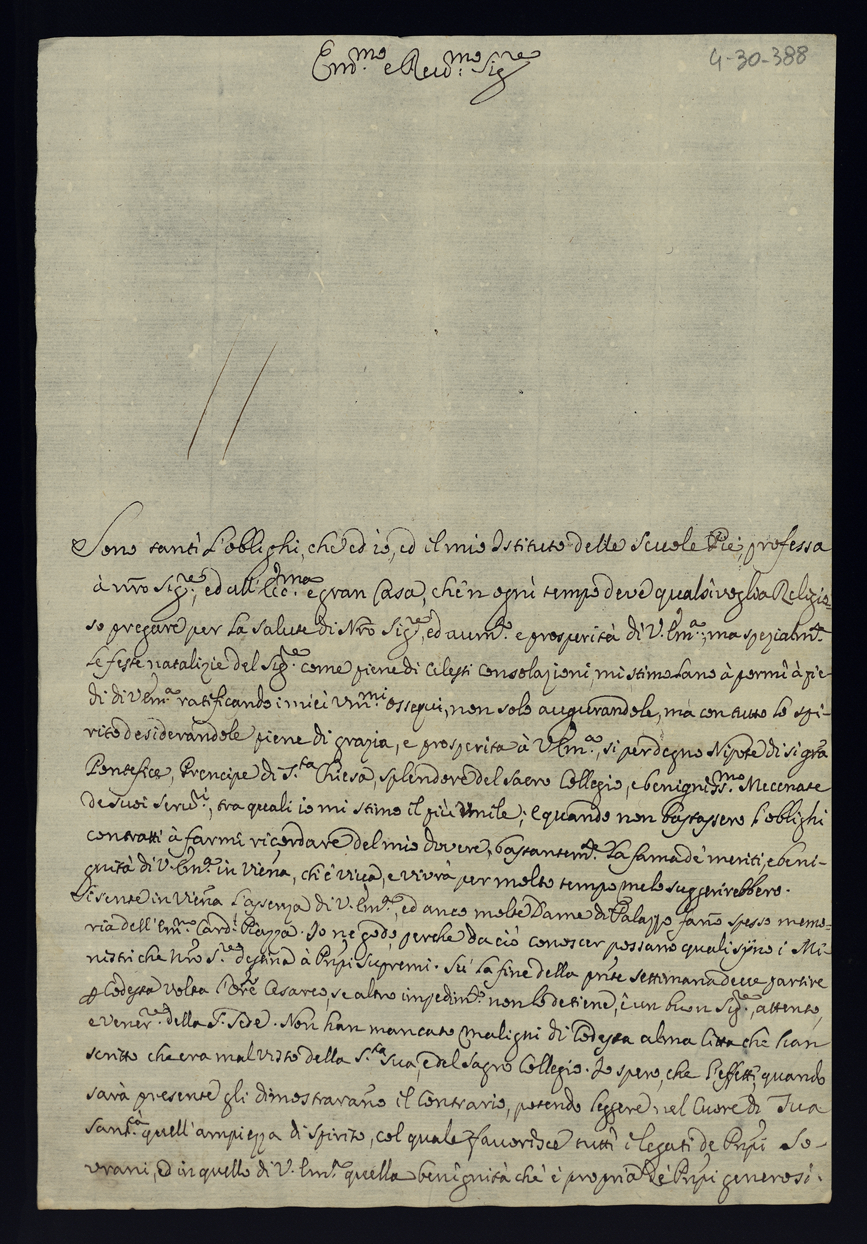 Em.mo e Reu.mo Sig.re
4-30-388
Sono tanti l'oblighi, che ed io, ed il mio Istituto delle Scuole Pie, professa
à nro Sig.re, ed all' Ecc.ma e gran Casa, che'n ogni tempo deve qualsivoglia Religio=
so pregare per la salute di Nro Sig.re, ed aum.to e prosperità di V. Em.a, ma spezialm.te
le feste natalizie del Sig.re come piene di Celesti Consolazioni, mi stimolano à pormi à pie
di di V. Em.a ratificando i miei um.mi ossequi, non solo augurandole, mà con tutto lo spi-
rito desiderandole piene di grazia, e prosperita à V. Em.a, si per degno Nipote di si gra
Pontefice, Prencipe di S.ta Chiesa, splendore del sacro Collegio, e benigniss.mo Mecenate
de suoi seru.i, tra quali io mi stimo il più umile; e quando non bastassero l'oblighi
contratti à farmi ricordare del mio dovere, bastantem.te la fama de meriti, e beni-
gnità di V. Em.a in Viena, ch'è viva, e vivrà per molto tempo me lo suggerirebbero.
Si sente in Viena l'assenza di V. Em.a, ed anco molte Dame di Palazzo fano spesso memo=
ria dell' Em.o Card.l Piazza. Io ne godo, perche da ciò conoscer possano quali sijno i Mi-
nistri che Nro S.re destina à Prpi Supremi. Sù la fine della pnte settimana deve partire
p Codesta volta Cesareo, se altro impedim.to non lo detiene, è un buon Sig.re, attento,
e vener.e della S. Sede. Non han mancato maligni di Codesta alma Città che han
scritto che era mal visto della S.tà Sua, e del Sagro Collegio. Io spero, che l'effetti, quando
sarà presente gli dimostrarano il Contrario, potendo leggere nel Cuore di Sua
Sant.à quell' ampiezza di Spirito, col quale favorisce tutti i legati de Prpi So-
vrani, ed in quello di V. Em.a quella benignità ch' è propria de Prpi generosi.